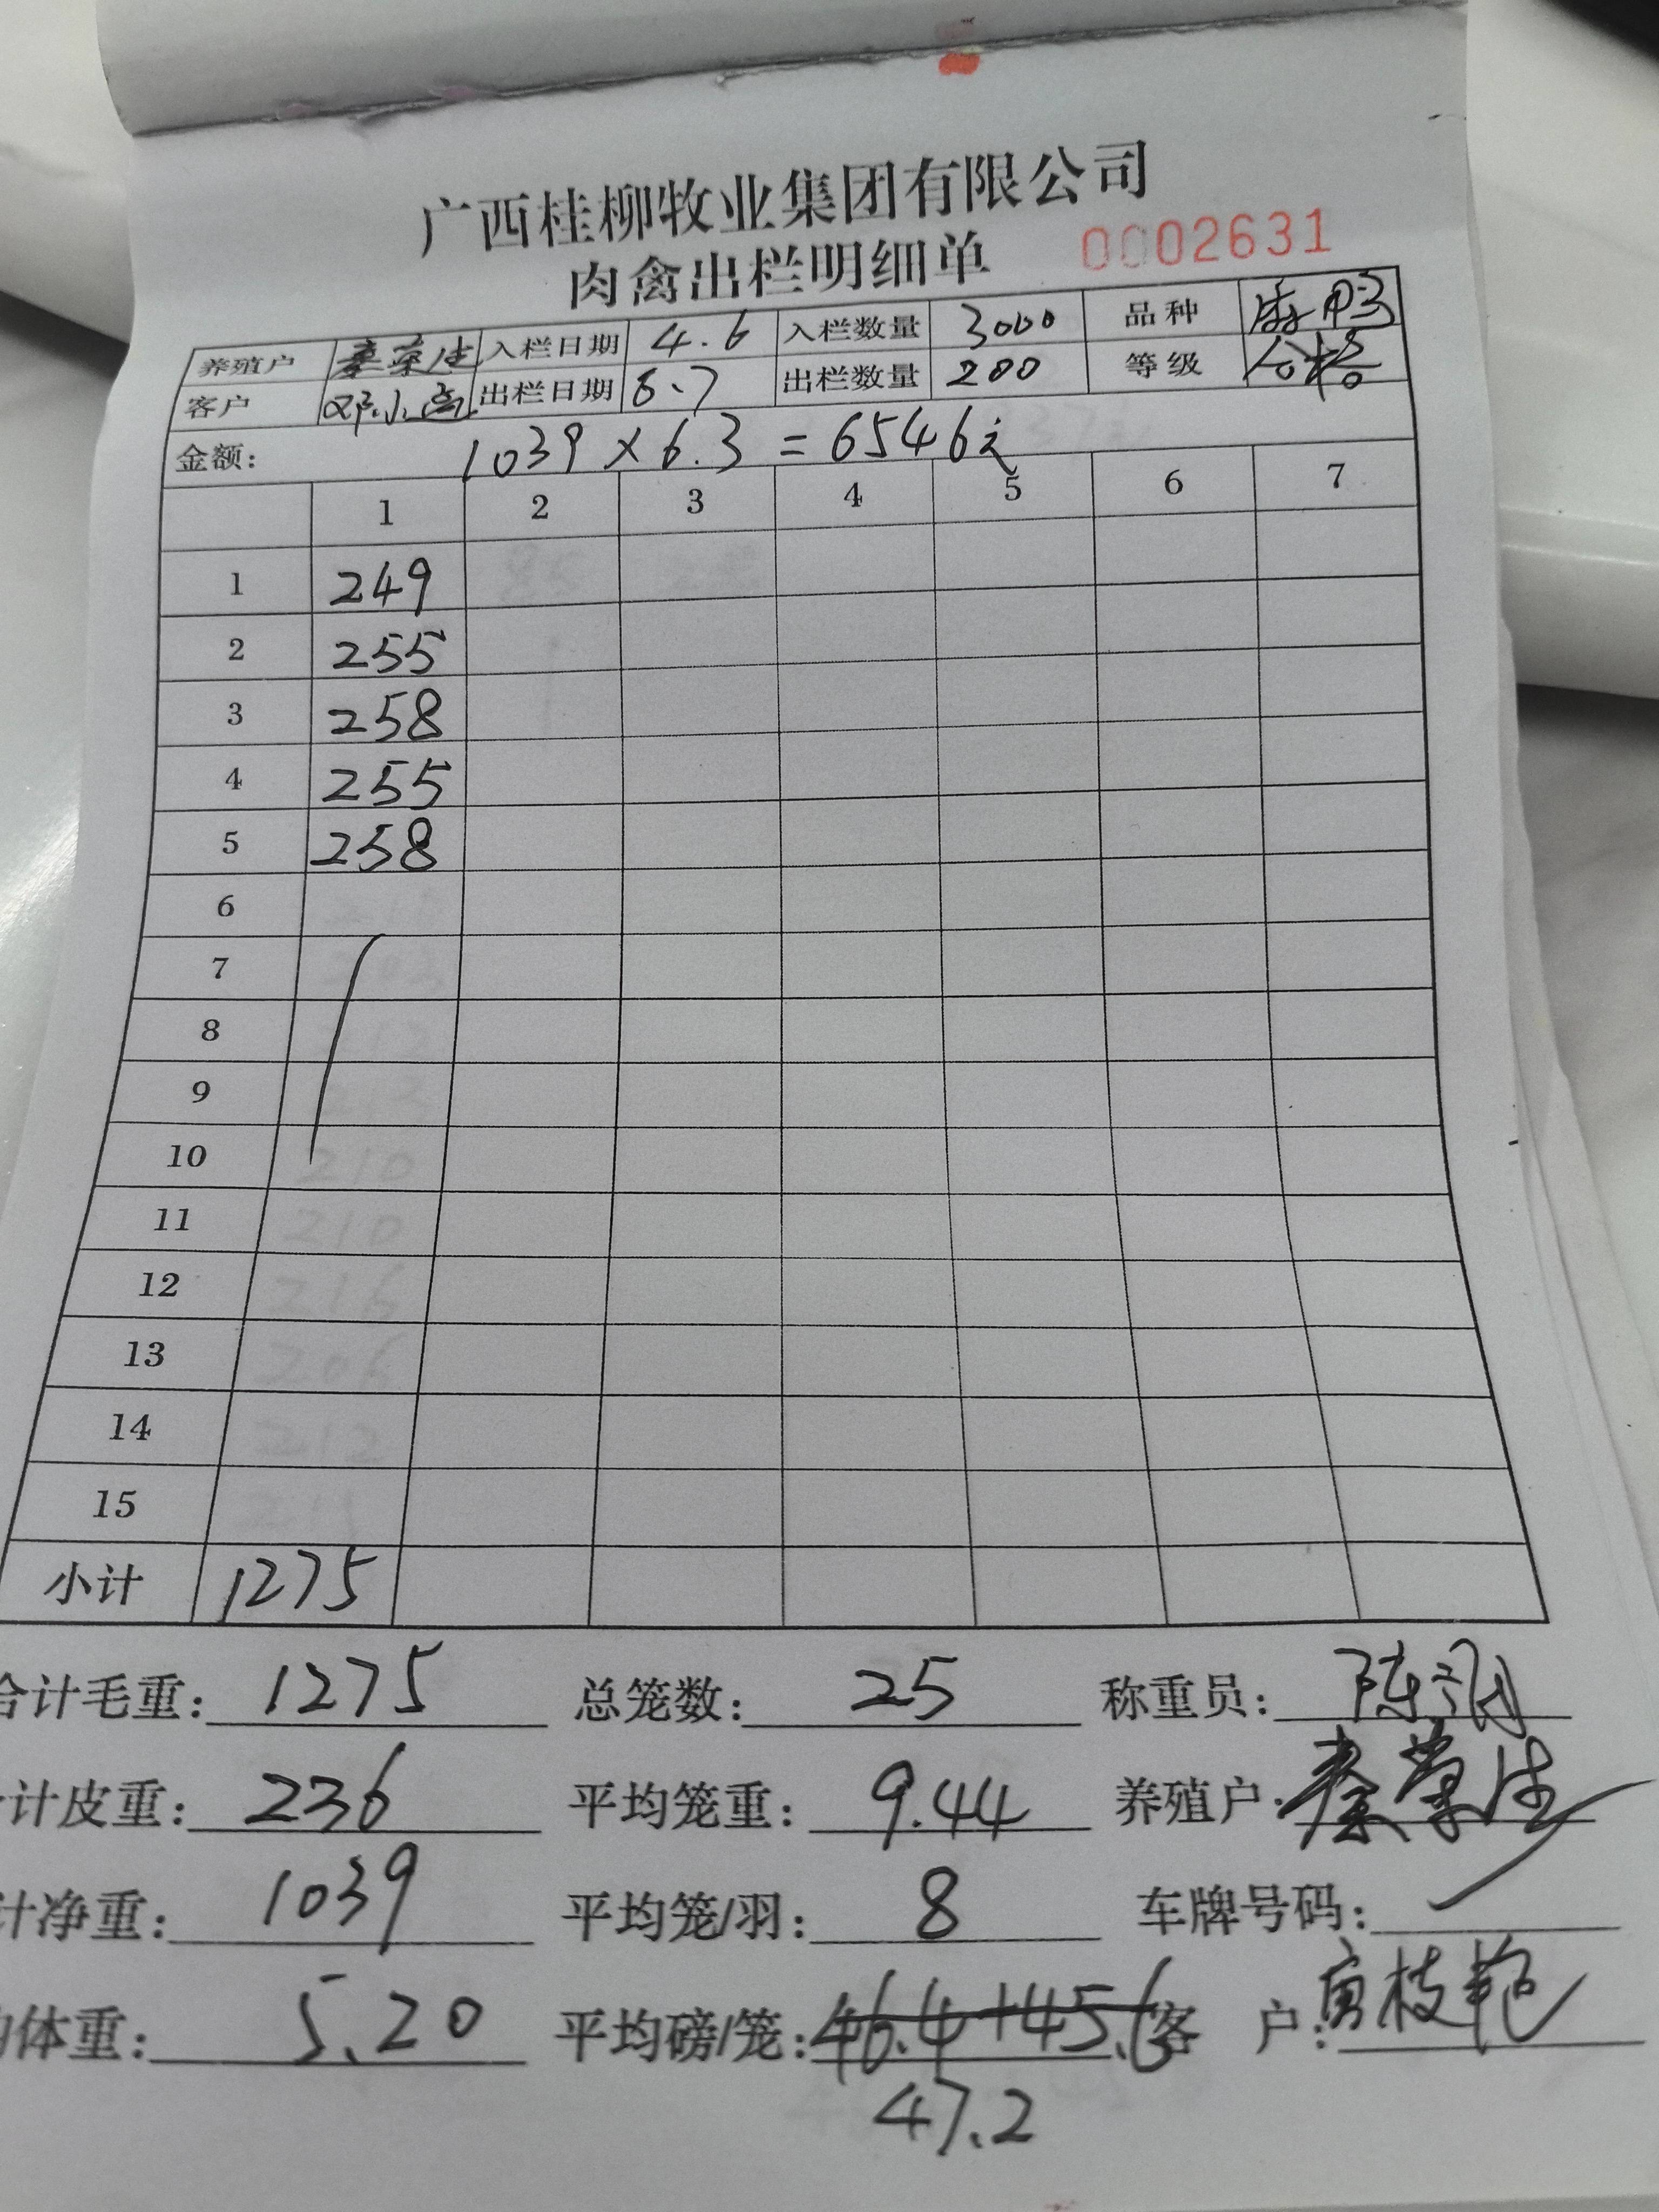 广西桂柳牧业集团有限公司
肉禽出栏明细单 0002631
养殖户 秦荣生 入栏日期 4.6 入栏数量 3000 品种 麻鸭
客户 邓小 出栏日期 6.7 出栏数量 200 等级 合格
金额: 1039×6.3=6546元
1 2 3 4 5 6 7
1 249
2 255
3 258
4 255
5 258
6
7
8
9
10
11
12
13
14
15
小计 1275
合计毛重: 1275 总笼数: 25 称重员: 陈
计皮重: 236 平均笼重: 9.44 养殖户: 秦荣生
计净重: 1039 平均笼/羽: 8 车牌号码:
体重: 5.20 平均磅/笼: 46.4+45.6 客 户: 黄枝艳
47.2